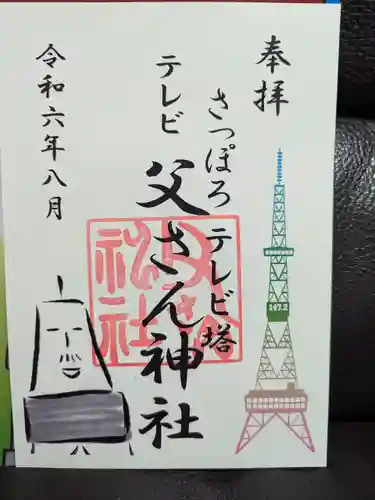 奉拝
さっぽろテレビ塔
テレビ
父さん神社
令和六年八月
147.2